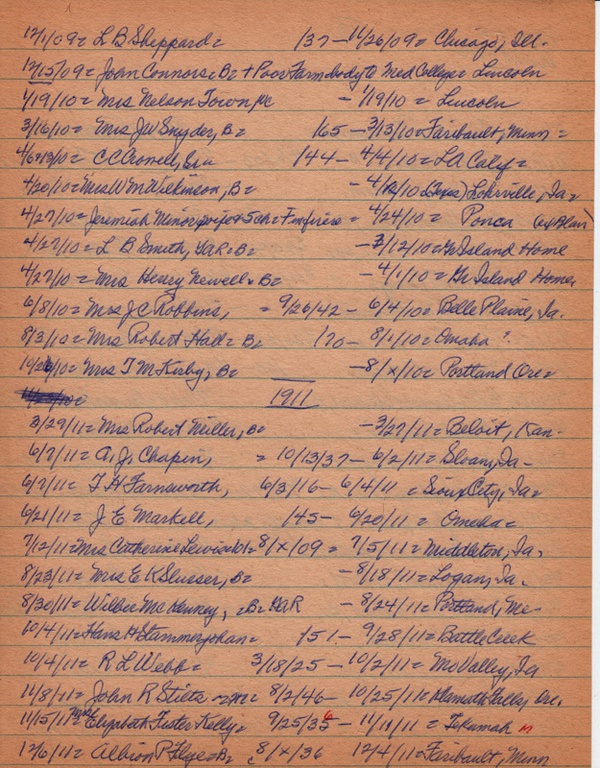 12/1/09= L B Sheppard= 137—11/26/09= Chicago, Ill.
12/15/09= Joan Connors= B= + Poor Farm body to Med College= Lincoln
1/19/10= Mrs Nelson Town, — 1/19/10= Lincoln
3/16/10= Mrs JW Snyder, B= 165—3/13/10= Faribault, Minn=
C C Crowell, Sr= 144— 4/4/10= LA Caly=
4/20/10= Mrs Wm Wilkinson, B= Lohrville, Ia=
4/27/10= Jeremiah Minor, = 4/24/10= Ponca (ex Blair)
4/27/10= L B Smith, GAR= B= 12/10= Gr Island Home
4/27/10= Mrs Henry Newell= B= —4/1/10= Gr Island Home
6/8/10= Mrs J C Robbins, = 9/26/42— 6/4/10= Belle Plaine, Ia.
8/3/10= Mrs Robert Hall= B= 170— 8/1/10= Omaha ?
Mrs T M Kirby, B= —8/x/10= Portland Ore=
1911
3/29/11= Mrs Robert Miller, B= —3/27/11= Beloit, Kan-
6/7/11= A. J. Chapin, = 10/13/37— 6/2/11= Sloan, Ia-
6/7/11= T H Farnsworth, 6/3/16— 6/4/11 = Sioux City, Ia=
6/21/11= J E Markell, 145— 6/20/11= Omaha=
7/12/11= Mrs Catherine = 8/x/09= 7/5/11= Middleton, Ia.
8/23/11= Mrs E K Slusser, B= —8/18/11= Logan, Ia.
8/30/11= Wilber McKenney, =B= GAR — 8/24/11= Portland, Me-
10/4/11= Hans H Stammerjohan= 151— 9/28/11= Battle Creek
10/4/11= R L Webb= 3/18/25— 10/2/11= Mo Valley, Ia
11/8/11= John R Stilts 8/2/46— 10/25/11= Klamath Falls, Ore.
11/15/11= Mrs Elizabeth Foster Kelly= 9/25/36— 11/11/11= Tekamah
12/6/11= Albion P Flye= B= 8/x/36 12/4/11= Faribault, Minn